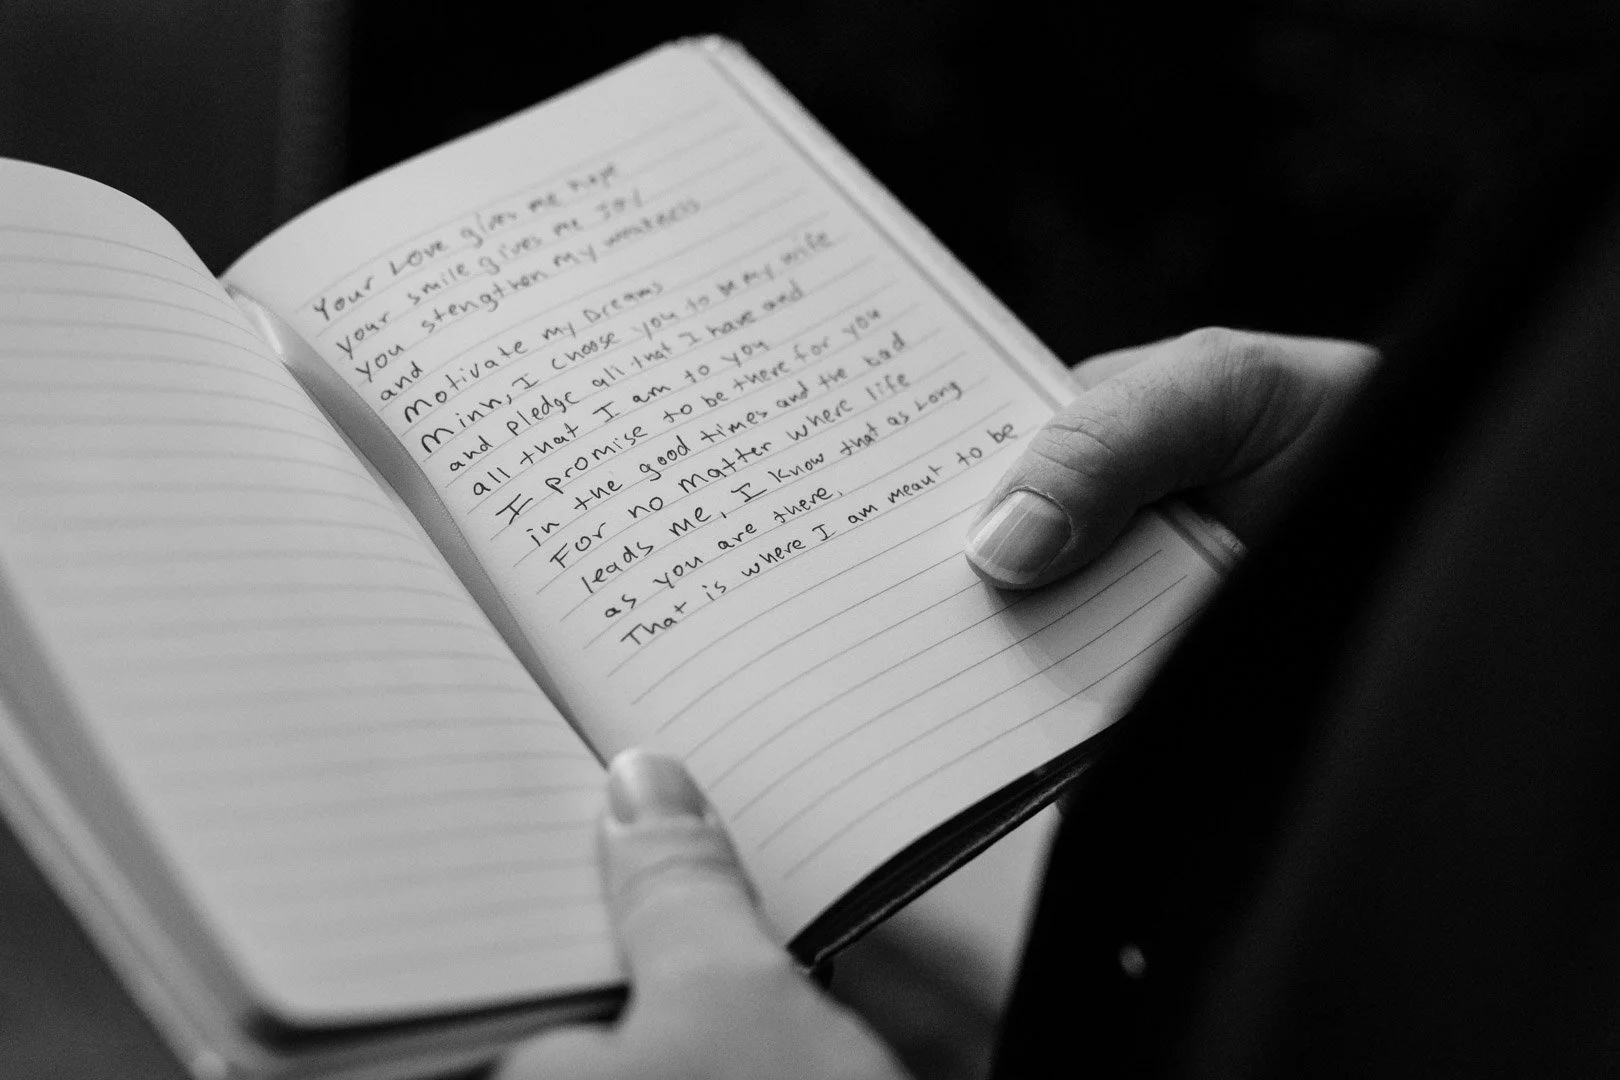 Your Love gives me hope
your smile gives me Joy
you stengthen my weakness
and
Motivate my Dreams
Minh, I choose you to be my wife
and pledge all that I have and
all that I am to you
I promise to be there for you
in the good times and the bad
For no matter where life
leads me, I know that as Long
as you are there,
That is where I am meant to be